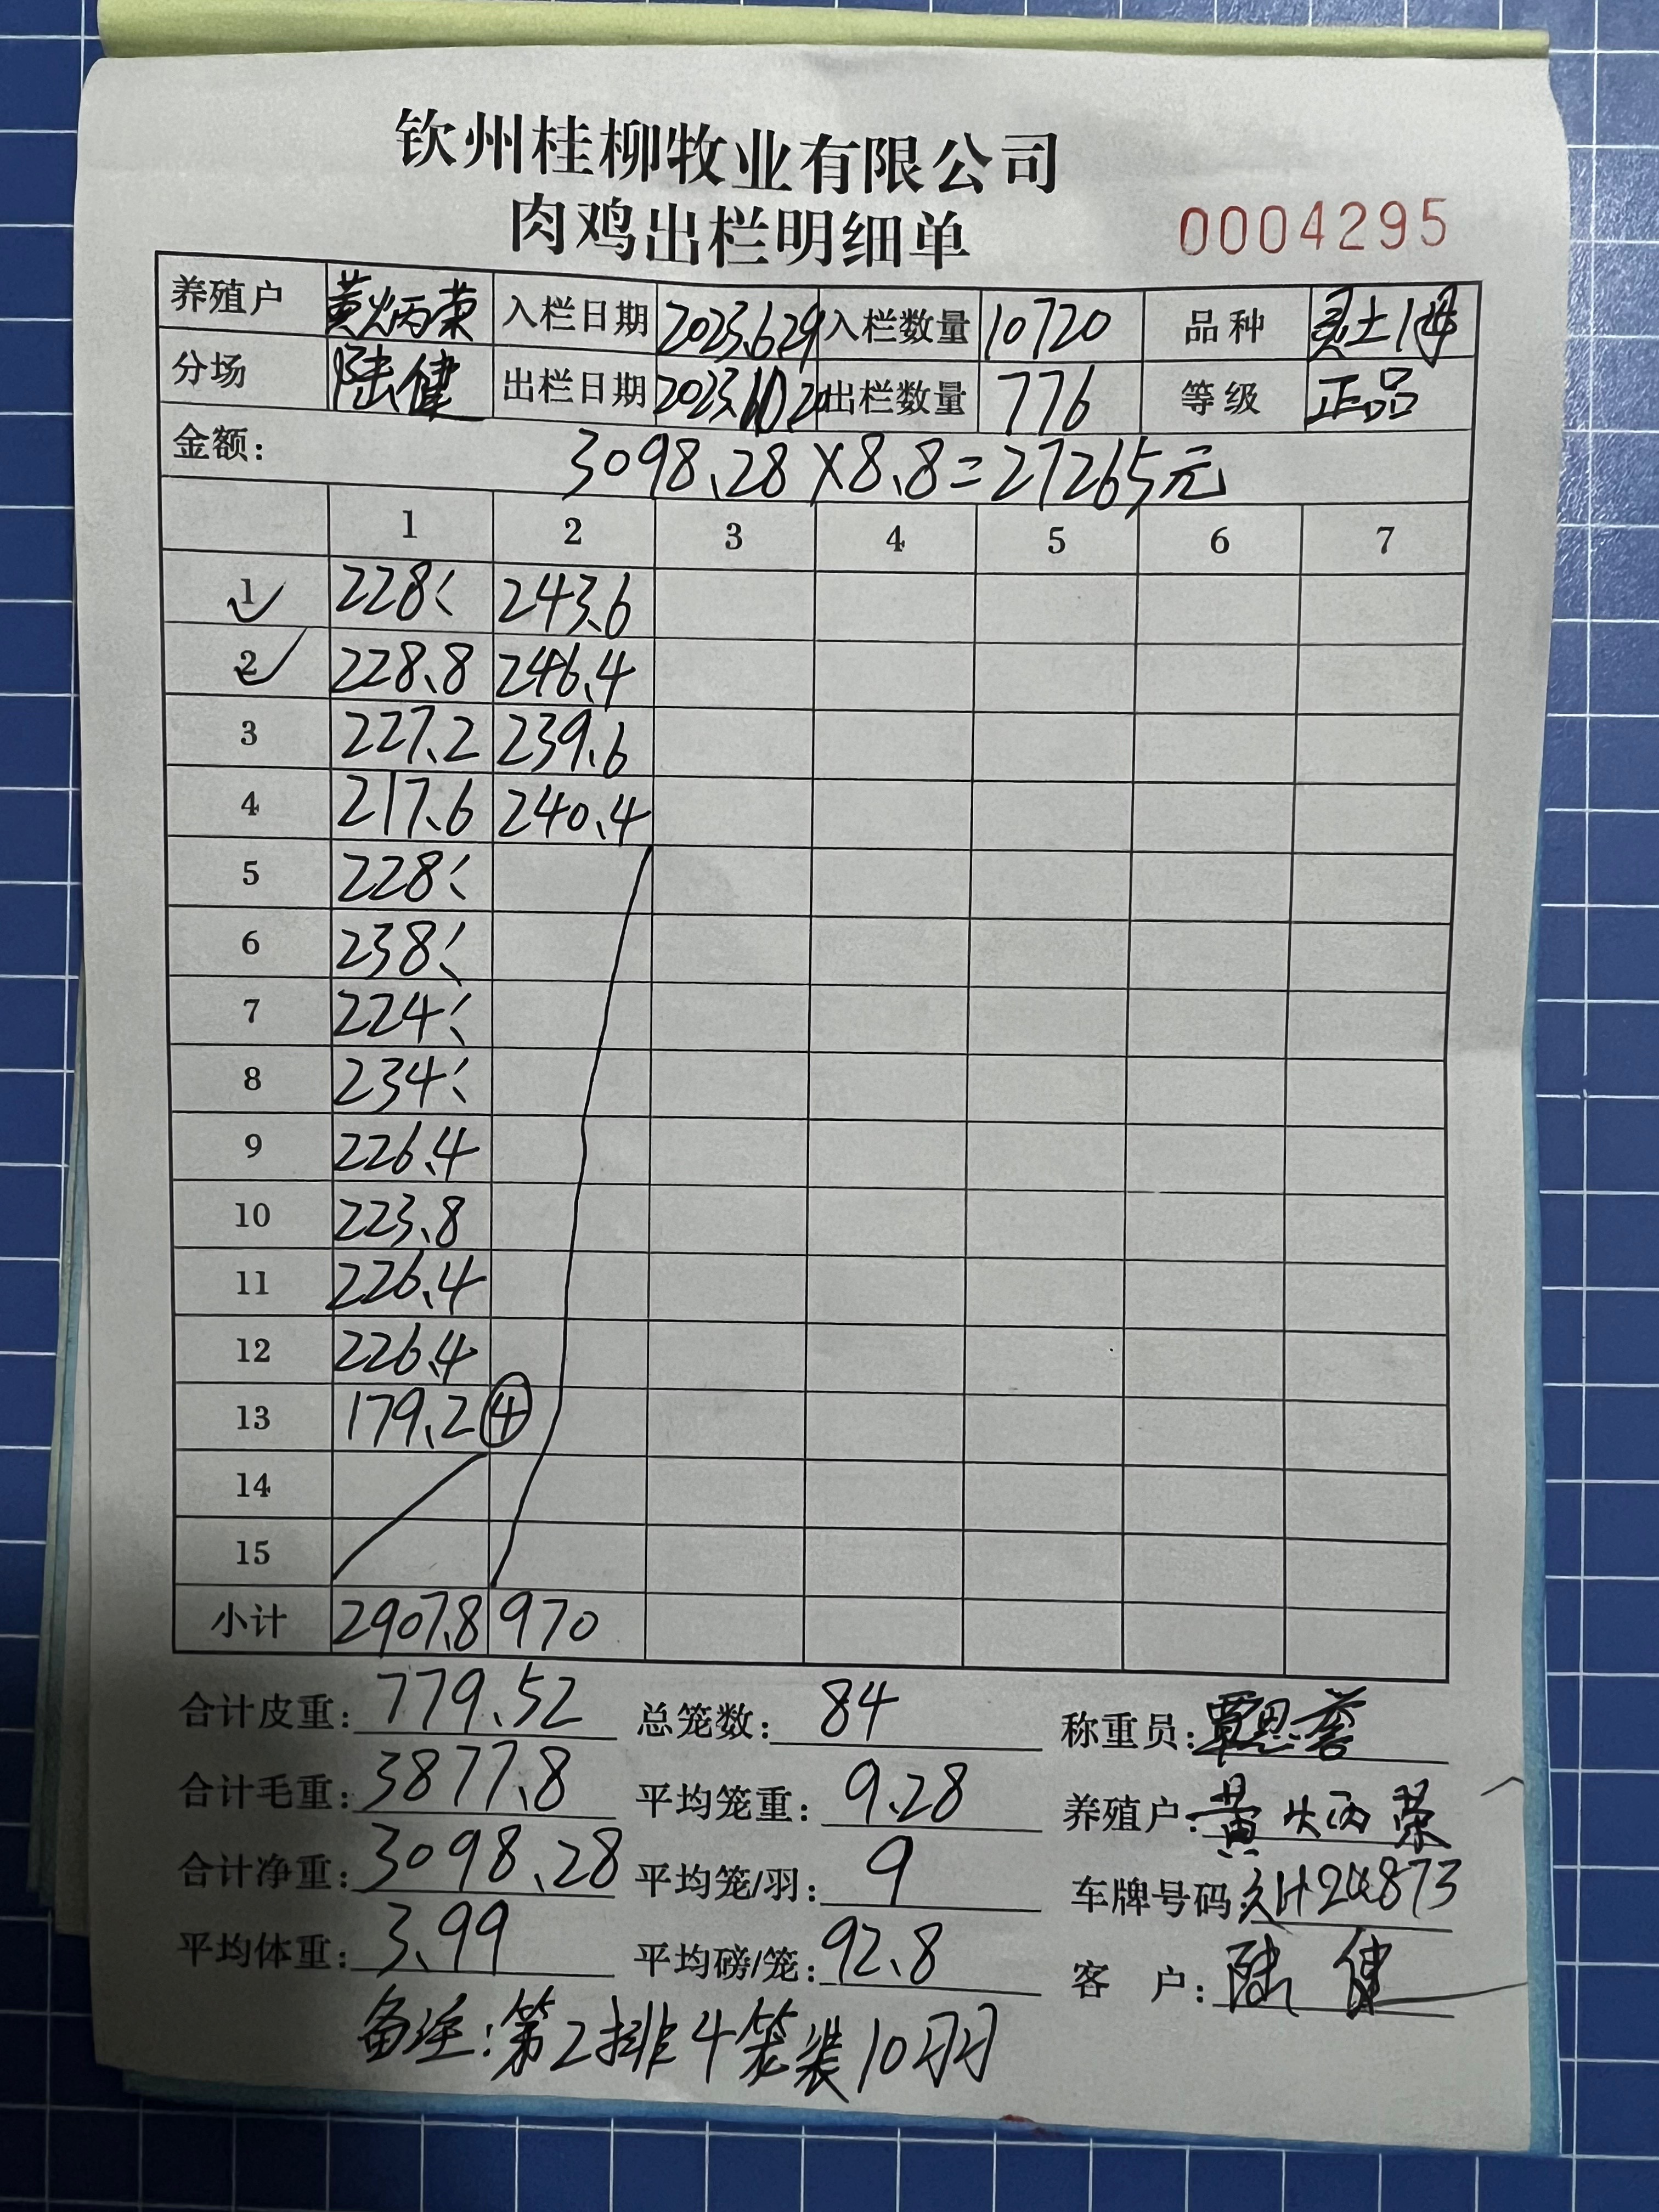 钦州桂柳牧业有限公司
肉鸡出栏明细单 0004295
养殖户 黄炳荣 入栏日期 2023.6.29 入栏数量 10720 品种 土1母
分场 陆健 出栏日期 2023.10.20 出栏数量 776 等级 正品
金额: 3098.28×8.8=27265元
1 2 3 4 5 6 7
1 228 243.6
2 228.8 246.4
3 227.2 239.6
4 217.6 240.4
5 228
6 238
7 224
8 234
9 226.4
10 223.8
11 226.4
12 226.4
13 179.2 ④
14
15
小计 2907.8 970
合计皮重: 779.52 总笼数: 84 称重员: 覃思
合计毛重: 3877.8 平均笼重: 9.28 养殖户: 黄炳荣
合计净重: 3098.28 平均笼/羽: 9 车牌号码:
平均体重: 3.99 平均磅/笼: 92.8 客户: 陆健
备注:第2排4笼装10羽